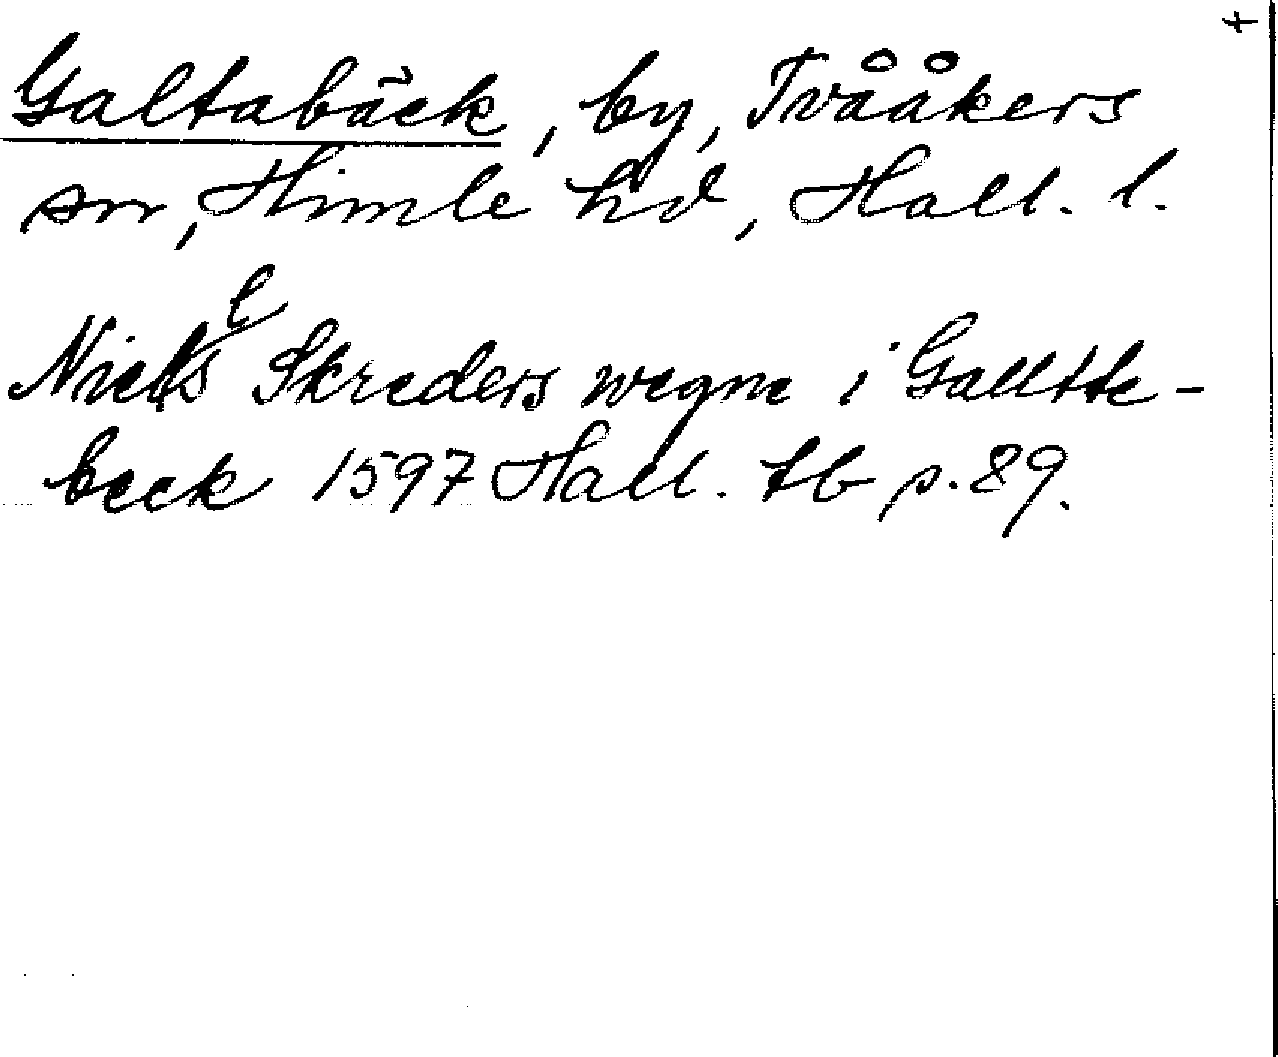 Galtabäck, by, Tvååkers
sn, Himle hd, Hall. l.
Niels Skreders wegne i Galltte-
beck 1597 Hall. tb p. 89.